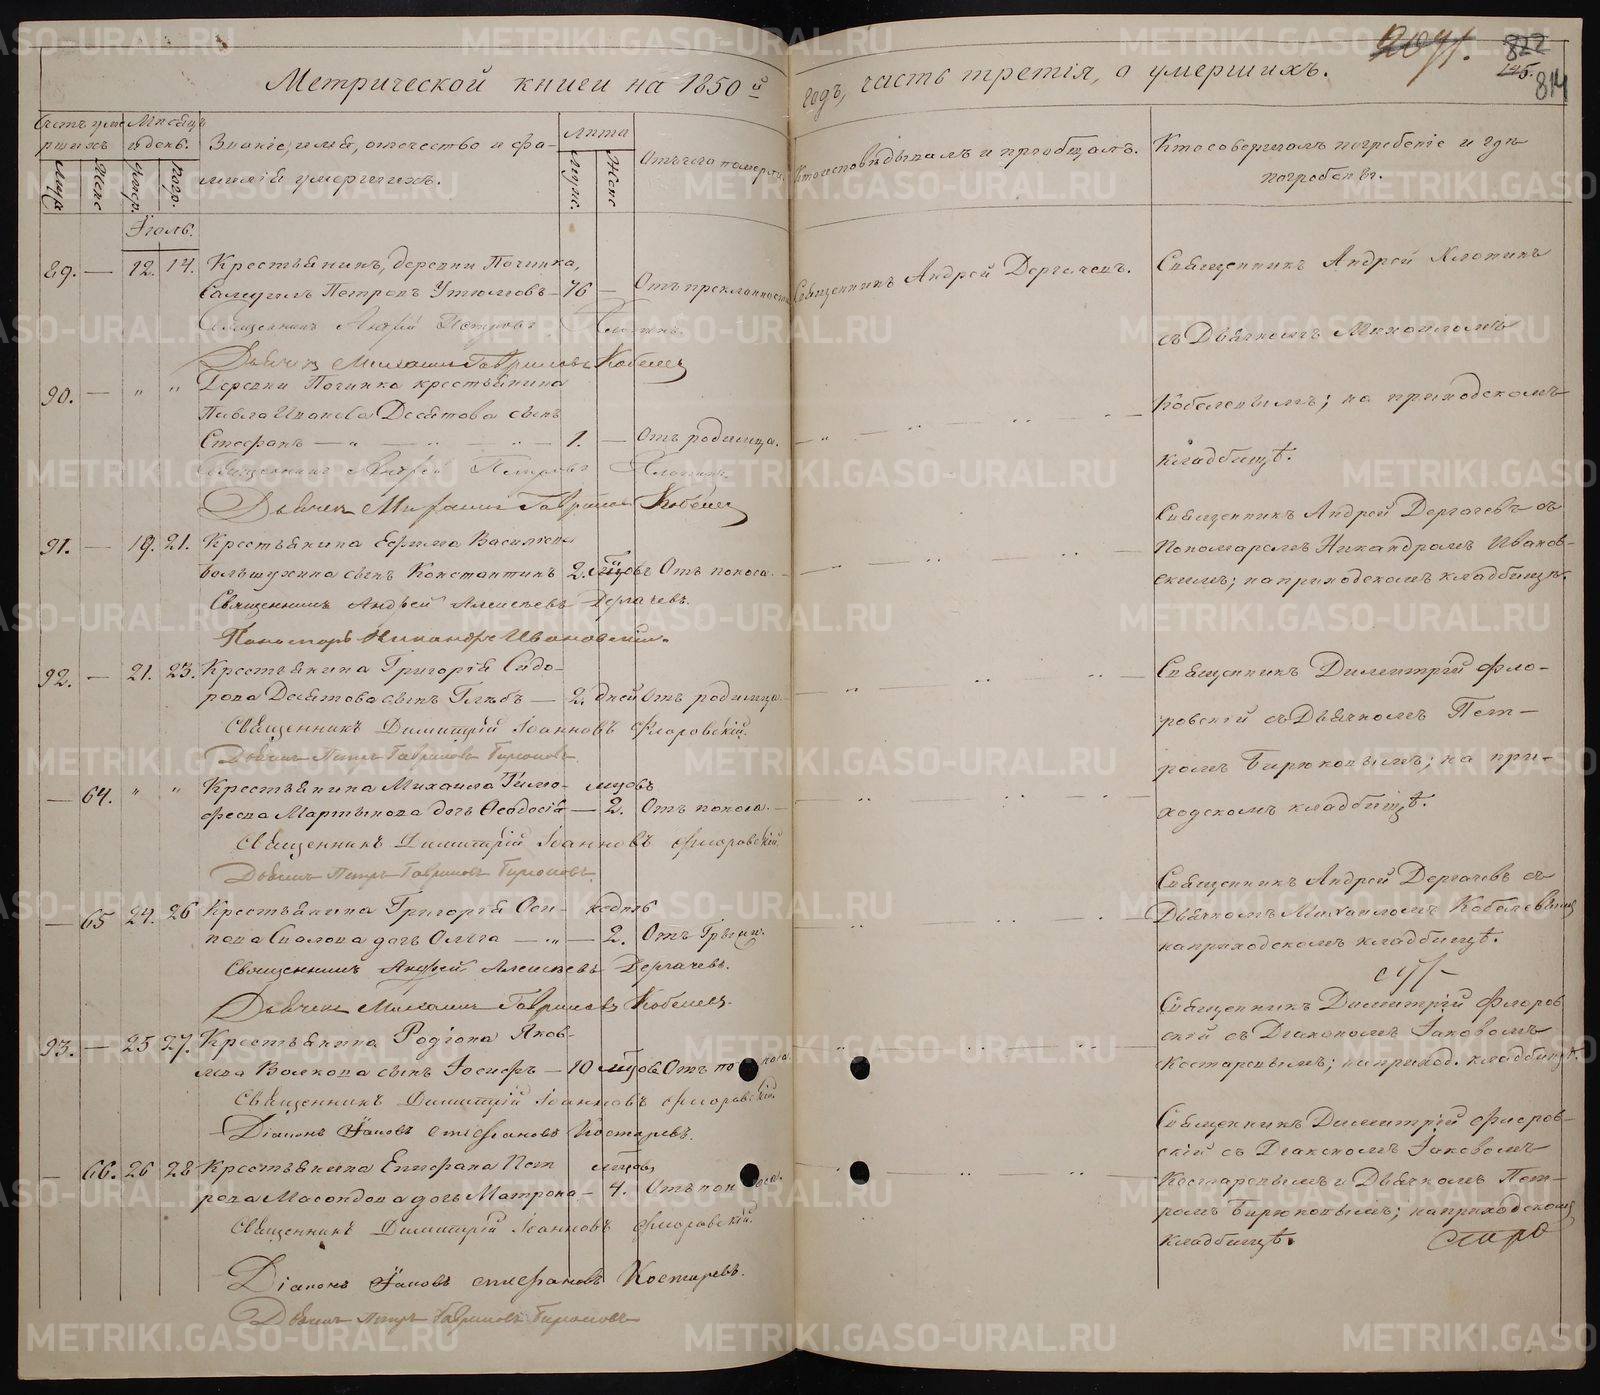 Метрической книги на 1850й годъ, часть третія, о умершихъ.
822
814
Счетъ умершихъ
Муж.
Женс.
Мѣсяцъ и день.
умер.
погр.
Званіе, имя, отчество и фамилія умершихъ.
Лѣта
Мужс.
Женс.
Отъ чего померли.
Кто исповѣдывалъ и пріобщалъ.
Кто совершалъ погребеніе и гдѣ погребены.
Іюль.
89. — 12. 14. Крестьянинъ, деревни Починка,
Самуилъ Петровъ Утюмовъ — 76 — Отъ преклонности
Священникъ Андрей Дергачевъ.
Священникъ Андрей Петровъ Хлопинъ
Дьячек Михаилъ Гавриловъ Кобелев
Священникъ Андрей Хлопинъ
съ Дьячкомъ Михаиломъ
Кобелевымъ; на приходскомъ
кладбищѣ.
90. — " " Деревни Починка крестьянина
Павла Иванова Десятова сынъ
Стефанъ — " — 1. — Отъ родимца.
Священникъ Андрей Петровъ Хлопинъ
Дьячек Михаилъ Гавриловъ Кобелев
91. — 19. 21. Крестьянина Ефима Васильева
Большухина сынъ Константинъ 2. мцовъ Отъ поноса.
Священникъ Андрей Алексѣевъ Дергачевъ.
Пономарь Никандръ Ивановскій.
Священникъ Андрей Дергачевъ съ
Пономаремъ Никандромъ Иванов-
скимъ; на приходскомъ кладбищѣ.
92. — 21. 23. Крестьянина Григорія Сидо-
рова Десятова сынъ Глѣбъ — 2. дней Отъ родимца.
Священникъ Димитрій Іоанновъ Флоровскій.
Дьячекъ Петръ Гавриловъ Бирюковъ
Священникъ Димитрій Фло-
ровскій съ Дьячкомъ Пет-
ромъ Бирюковымъ; на при-
ходскомъ кладбищѣ.
— 64. " " Крестьянина Михаила Тимо- мцовъ
феева Мартынова дочь Ѳеодосія — 2. Отъ поноса.
Священникъ Димитрій Іоанновъ Флоровскій.
Дьячекъ Петръ Гавриловъ Бирюковъ.
— 65 24. 26 Крестьянина Григорія Оси- недѣль
пова дочь Ольга — " — 2. Отъ Грыжи.
Священникъ Андрей Алексѣевъ Дергачевъ.
Дьячек Михаилъ Гавриловъ Кобелев.
Священникъ Андрей Дергачевъ съ
Дьячкомъ Михаиломъ Кобелевымъ
на приходскомъ кладбищѣ.
93. — 25 27. Крестьянина Родіона Яков-
лева Волкова сынъ Іосифъ — 10 мцовъ Отъ поноса.
Священникъ Димитрій Іоанновъ Флоровскій
Діаконъ Іаковъ Стефановъ Костаревъ.
Священникъ Димитрій Флоров
скій съ Діакономъ Іаковомъ
Костаревымъ; на приход. кладбищѣ.
— 66. 26 28 Крестьянина Епифана Пет мцовъ
рова дочь Матрона — 4. Отъ поноса.
Священникъ Димитрій Іоанновъ Флоровскій.
Діаконъ Іаковъ Стефановъ Костаревъ.
Дьячекъ Петръ Гавриловъ Бирюковъ
Священникъ Димитрій Флоров-
скій съ Діакономъ Іаковомъ
Костаревымъ и Дьячкомъ Пет-
ромъ Бирюковымъ; на приходскомъ
кладбищѣ.
METRIKI.GASO-URAL.RU